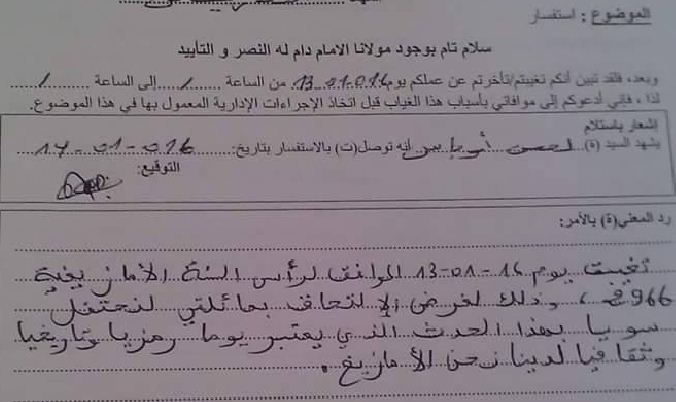 الموضوع : استفسار
سلام تام بوجود مولانا الامام دام له النصر و التأييد
وبعد، فلقد تبين أنكم تغيبتم/تأخرتم عن عملكم يوم 13.01.016 من الساعة ...../..... إلى الساعة ...../.....
لذا ، فإني أدعوكم إلى موافاتي بأسباب هذا الغياب قبل اتخاذ الإجراءات الإدارية المعمول بها في هذا الموضوع.
إشعار باستلام
يشهد السيد (ة) لحسن أنه توصل(ت) بالاستفسار بتاريخ: 17-01-016
التوقيع:
رد المعني(ة) بالأمر:
تغيبت يوم 16-01-13 الموافق لرأس السنة الأمازيغية
2966 ، وذلك لغرض الإلتحاق بعائلتي لنحتفل
سويا بهذا الحدث الذي يعتبر يوما رمزيا وتاريخيا
وثقافيا لدينا نحن الأمازيغ .